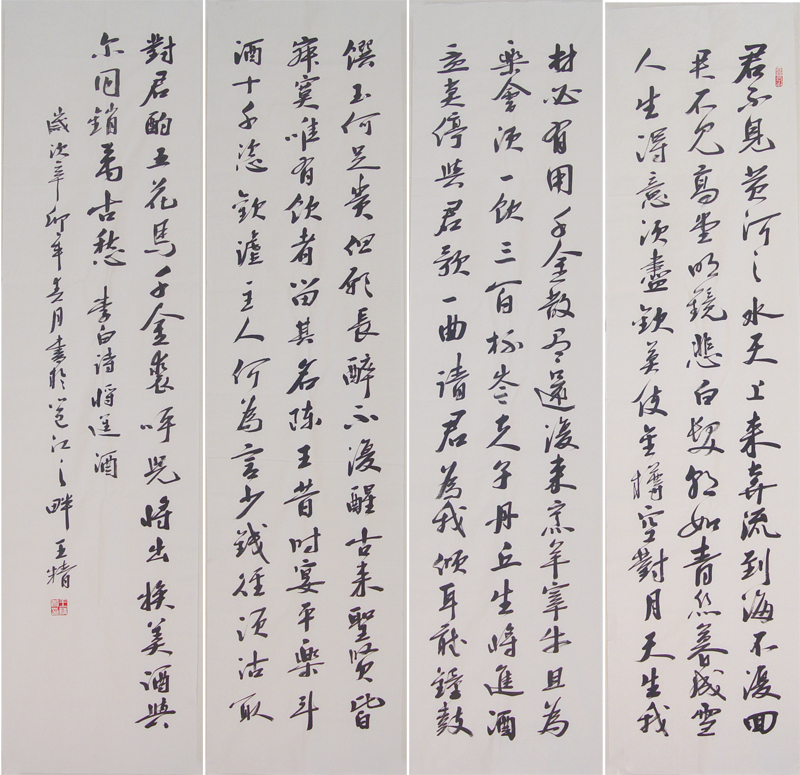 君不見黃河之水天上来奔流到海不復回
君不見高堂明鏡悲白髮朝如青絲暮成雪
人生得意須盡歡莫使金樽空對月天生我
材必有用千金散盡還復来烹羊宰牛且為
樂會須一飲三百杯岑夫子丹丘生將進酒
盃莫停與君歌一曲請君為我傾耳聽鐘鼓
馔玉何足貴但願長醉不復醒古来聖賢皆
寂寞唯有飲者留其名陳王昔时宴平樂斗
酒十千恣歡謔主人何為言少錢徑須沽取
對君酌五花馬千金裘呼兒將出換美酒與
尔同銷萬古愁 李白诗將進酒
歲次辛卯年月書於邕江之畔 王精